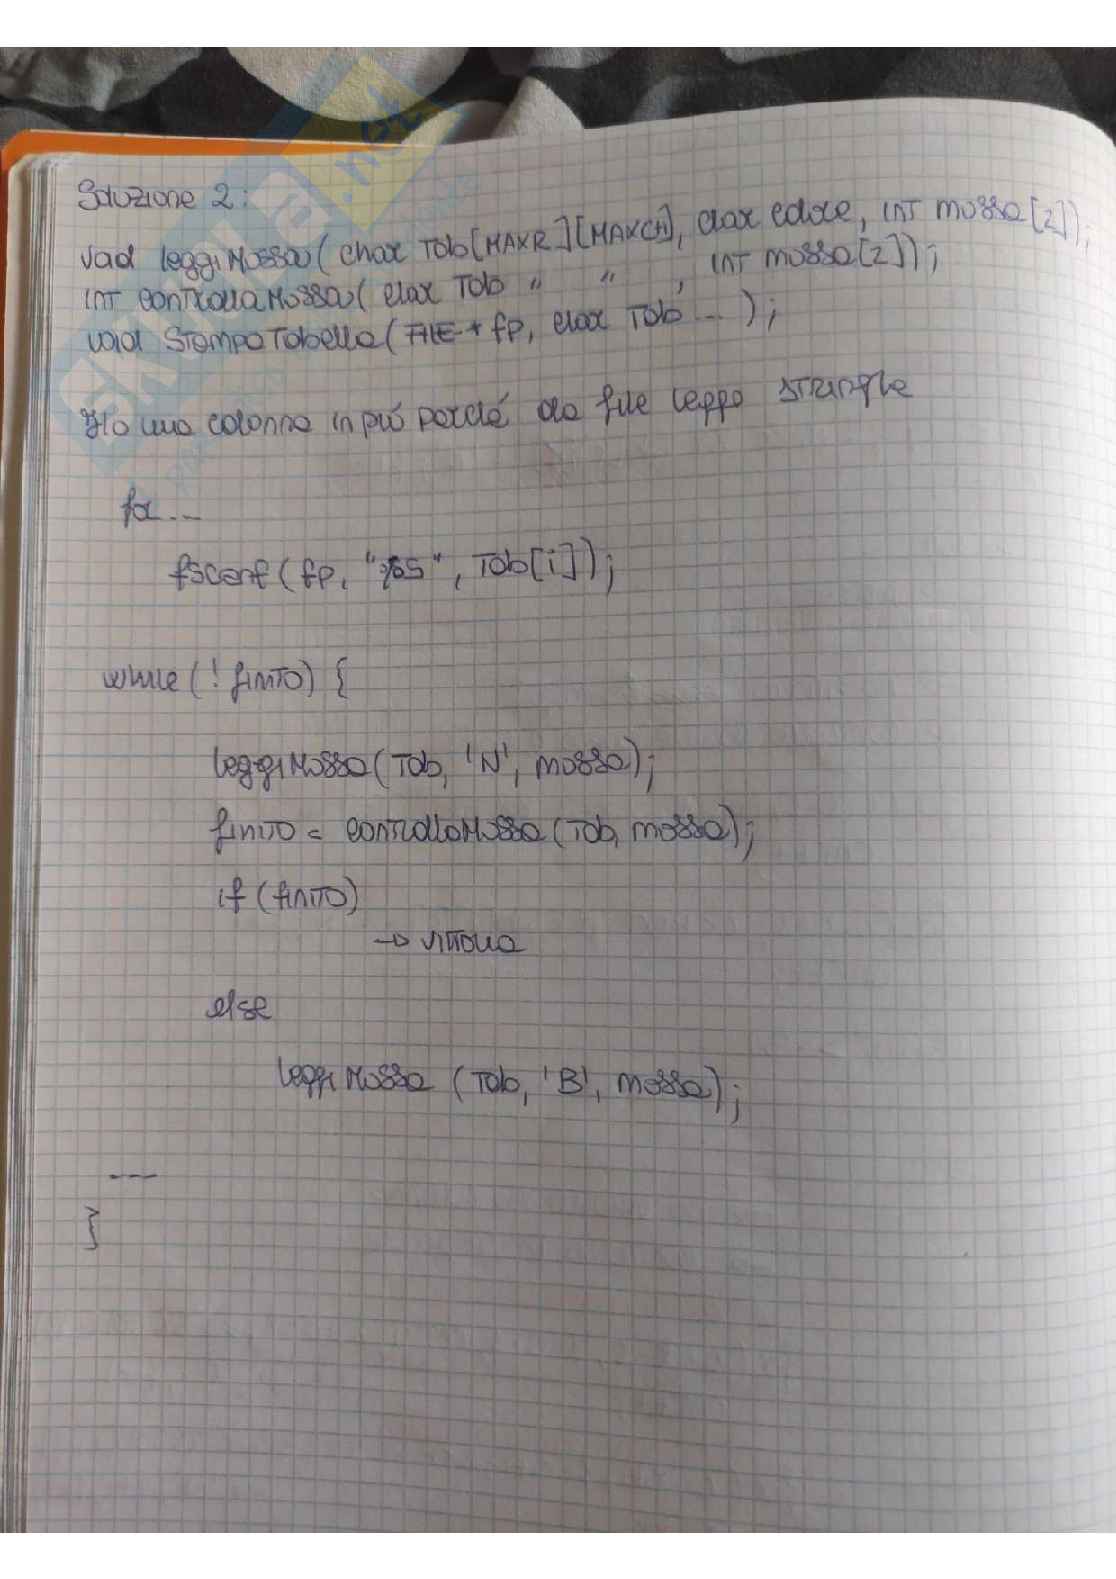 Soluzione 2:
void leggiMossa( char Tab[MAXR][MAXC+1], char colore, INT mossa[2]);
INT controllaMossa( char Tab " " , INT mossa[2]);
void StampaTabella( FILE * fp, char Tab ... );
Ho una colonna in più perché da file leggo stringhe
for ...
fscanf( fp, "%s", Tab[i]);
while (! finito) {
leggiMossa( Tab, 'N', mossa);
finito = controllaMossa( Tab, mossa);
if (finito)
→ vittoria
else
leggiMossa ( Tab, 'B', mossa);
----
}
skuola.net